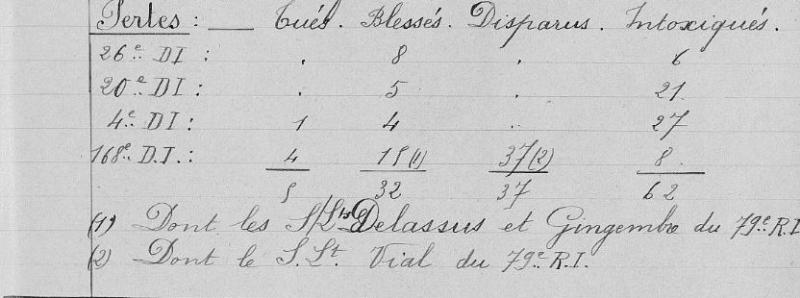 Pertes : __ Tués. Blessés. Disparus. Intoxiqués.
26e DI : . 8 . 6
20e DI : . 5 . 21
4e DI : 1 4 .. 27
168e D.I. : 4 15 (1) 37 (2) 8
5 32 37 62
(1) Dont les S/Lts Delassus et Gingembre du 79e R.I.
(2) Dont le S. Lt. Vial du 79e R.I.